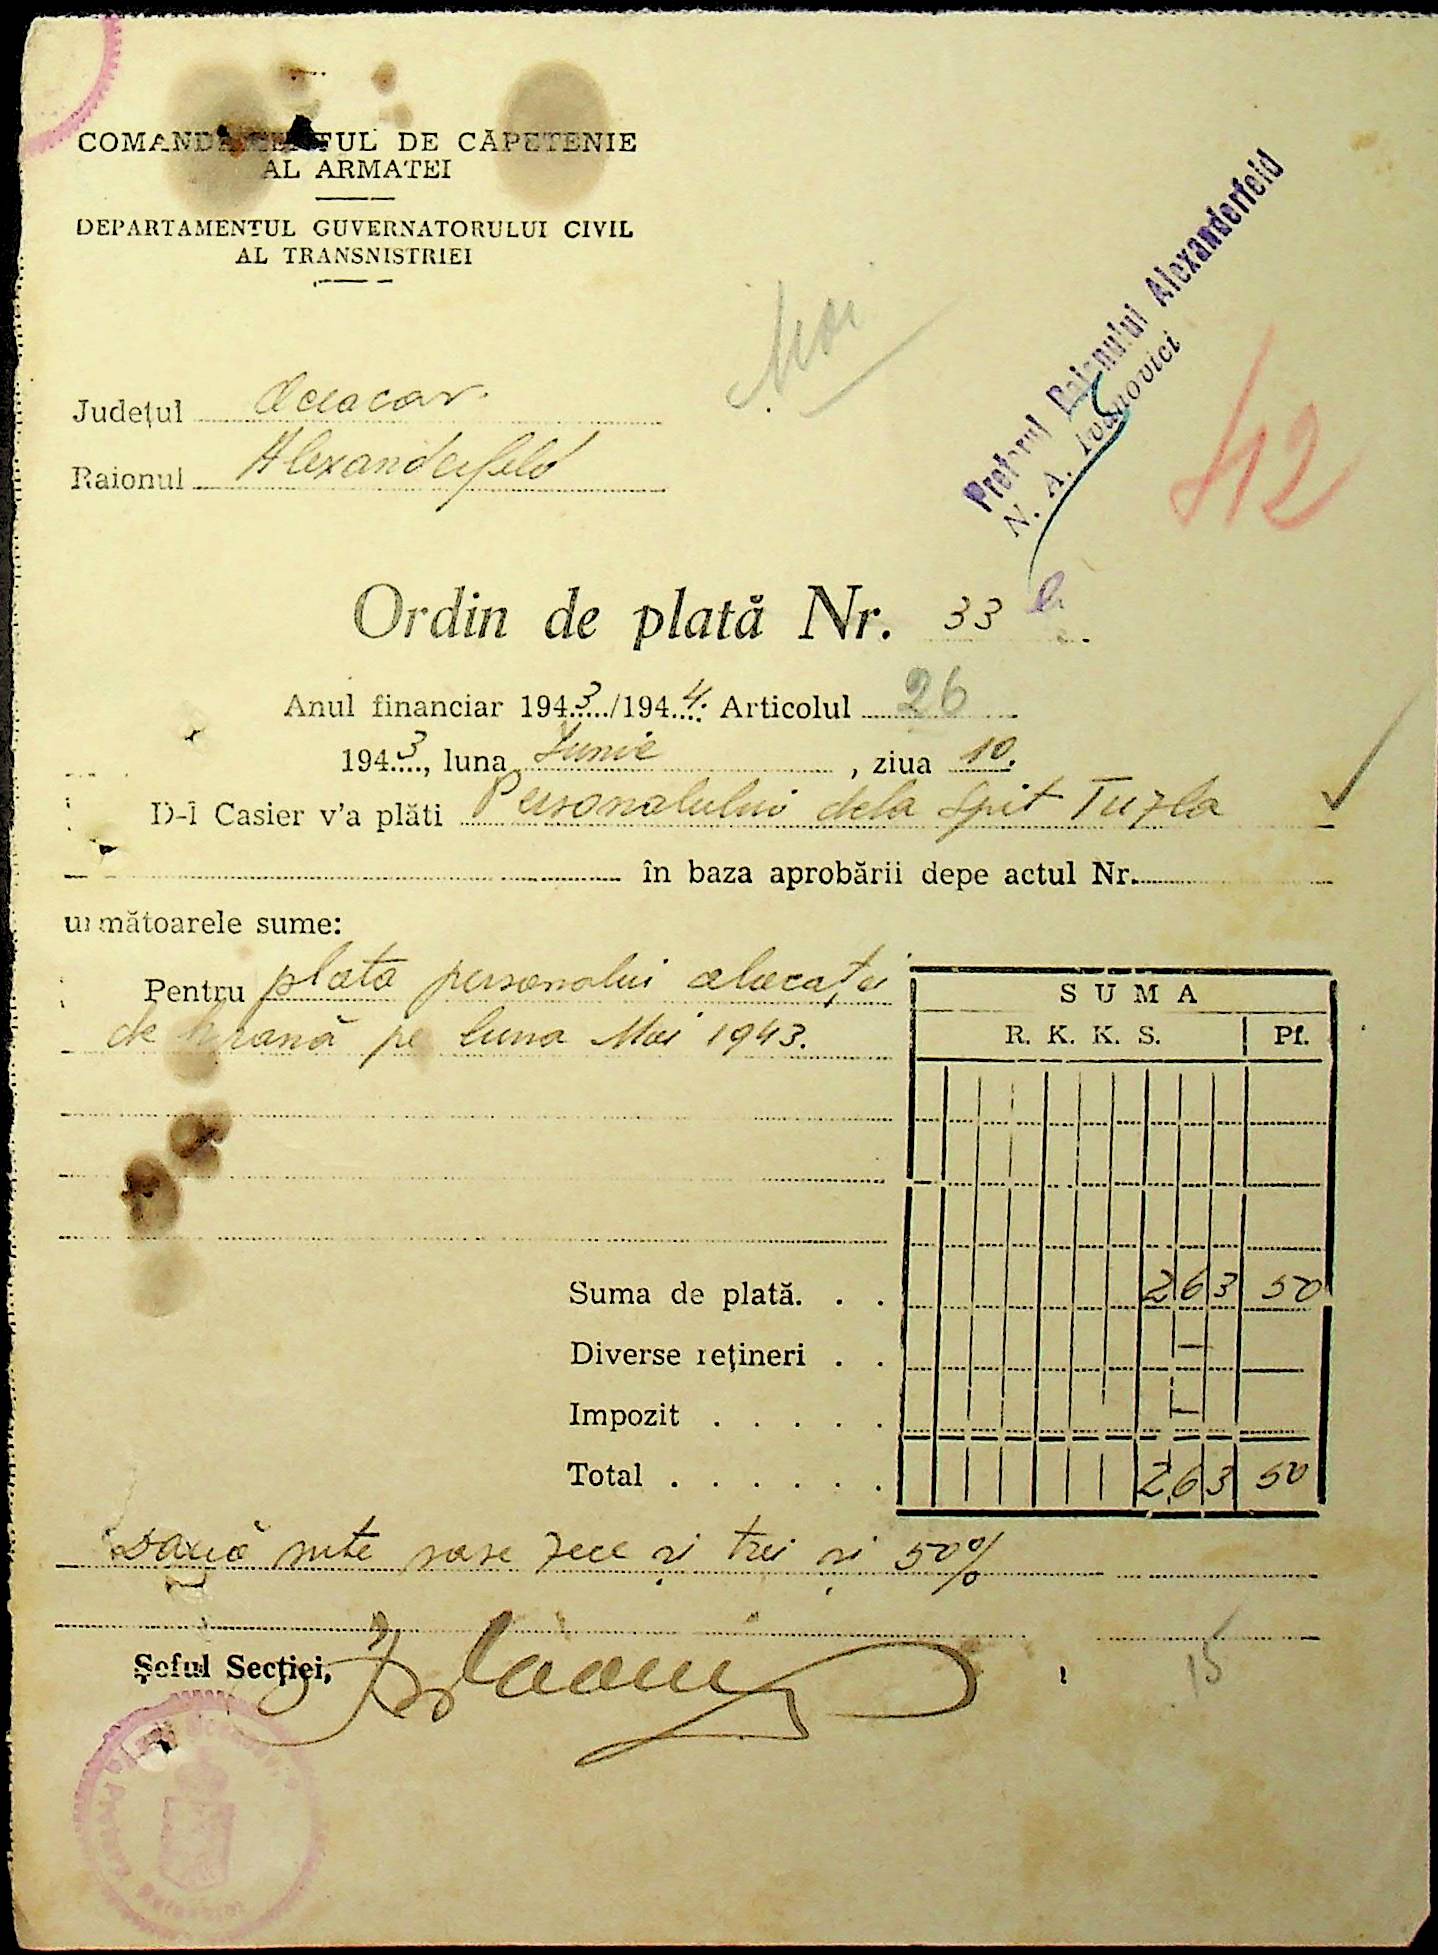 COMANDAMENTUL DE CĂPETENIE
AL ARMATEI
DEPARTAMENTUL GUVERNATORULUI CIVIL
AL TRANSNISTRIEI
Mai
Pretorul Raionului Alexanderfeld
N. A. Ivanovici
42
Județul Oceacov
Raionul Alexanderfeld
Ordin de plată Nr. 33
Anul financiar 1943/1944 Articolul 26
1943, luna Iunie, ziua 10.
D-l Casier v'a plăti Personalului dela Spit Tuzla
în baza aprobării depe actul Nr.
următoarele sume:
Pentru plata personalui alocației
de hrană pe luna Mai 1943.
SUMA
R. K. K. S. Pf.
Suma de plată. . . 263 50
Diverse rețineri . . —
Impozit . . . . . —
Total . . . . . . 263 50
Două sute șase zece și trei și 50%
Șeful Secției,
15